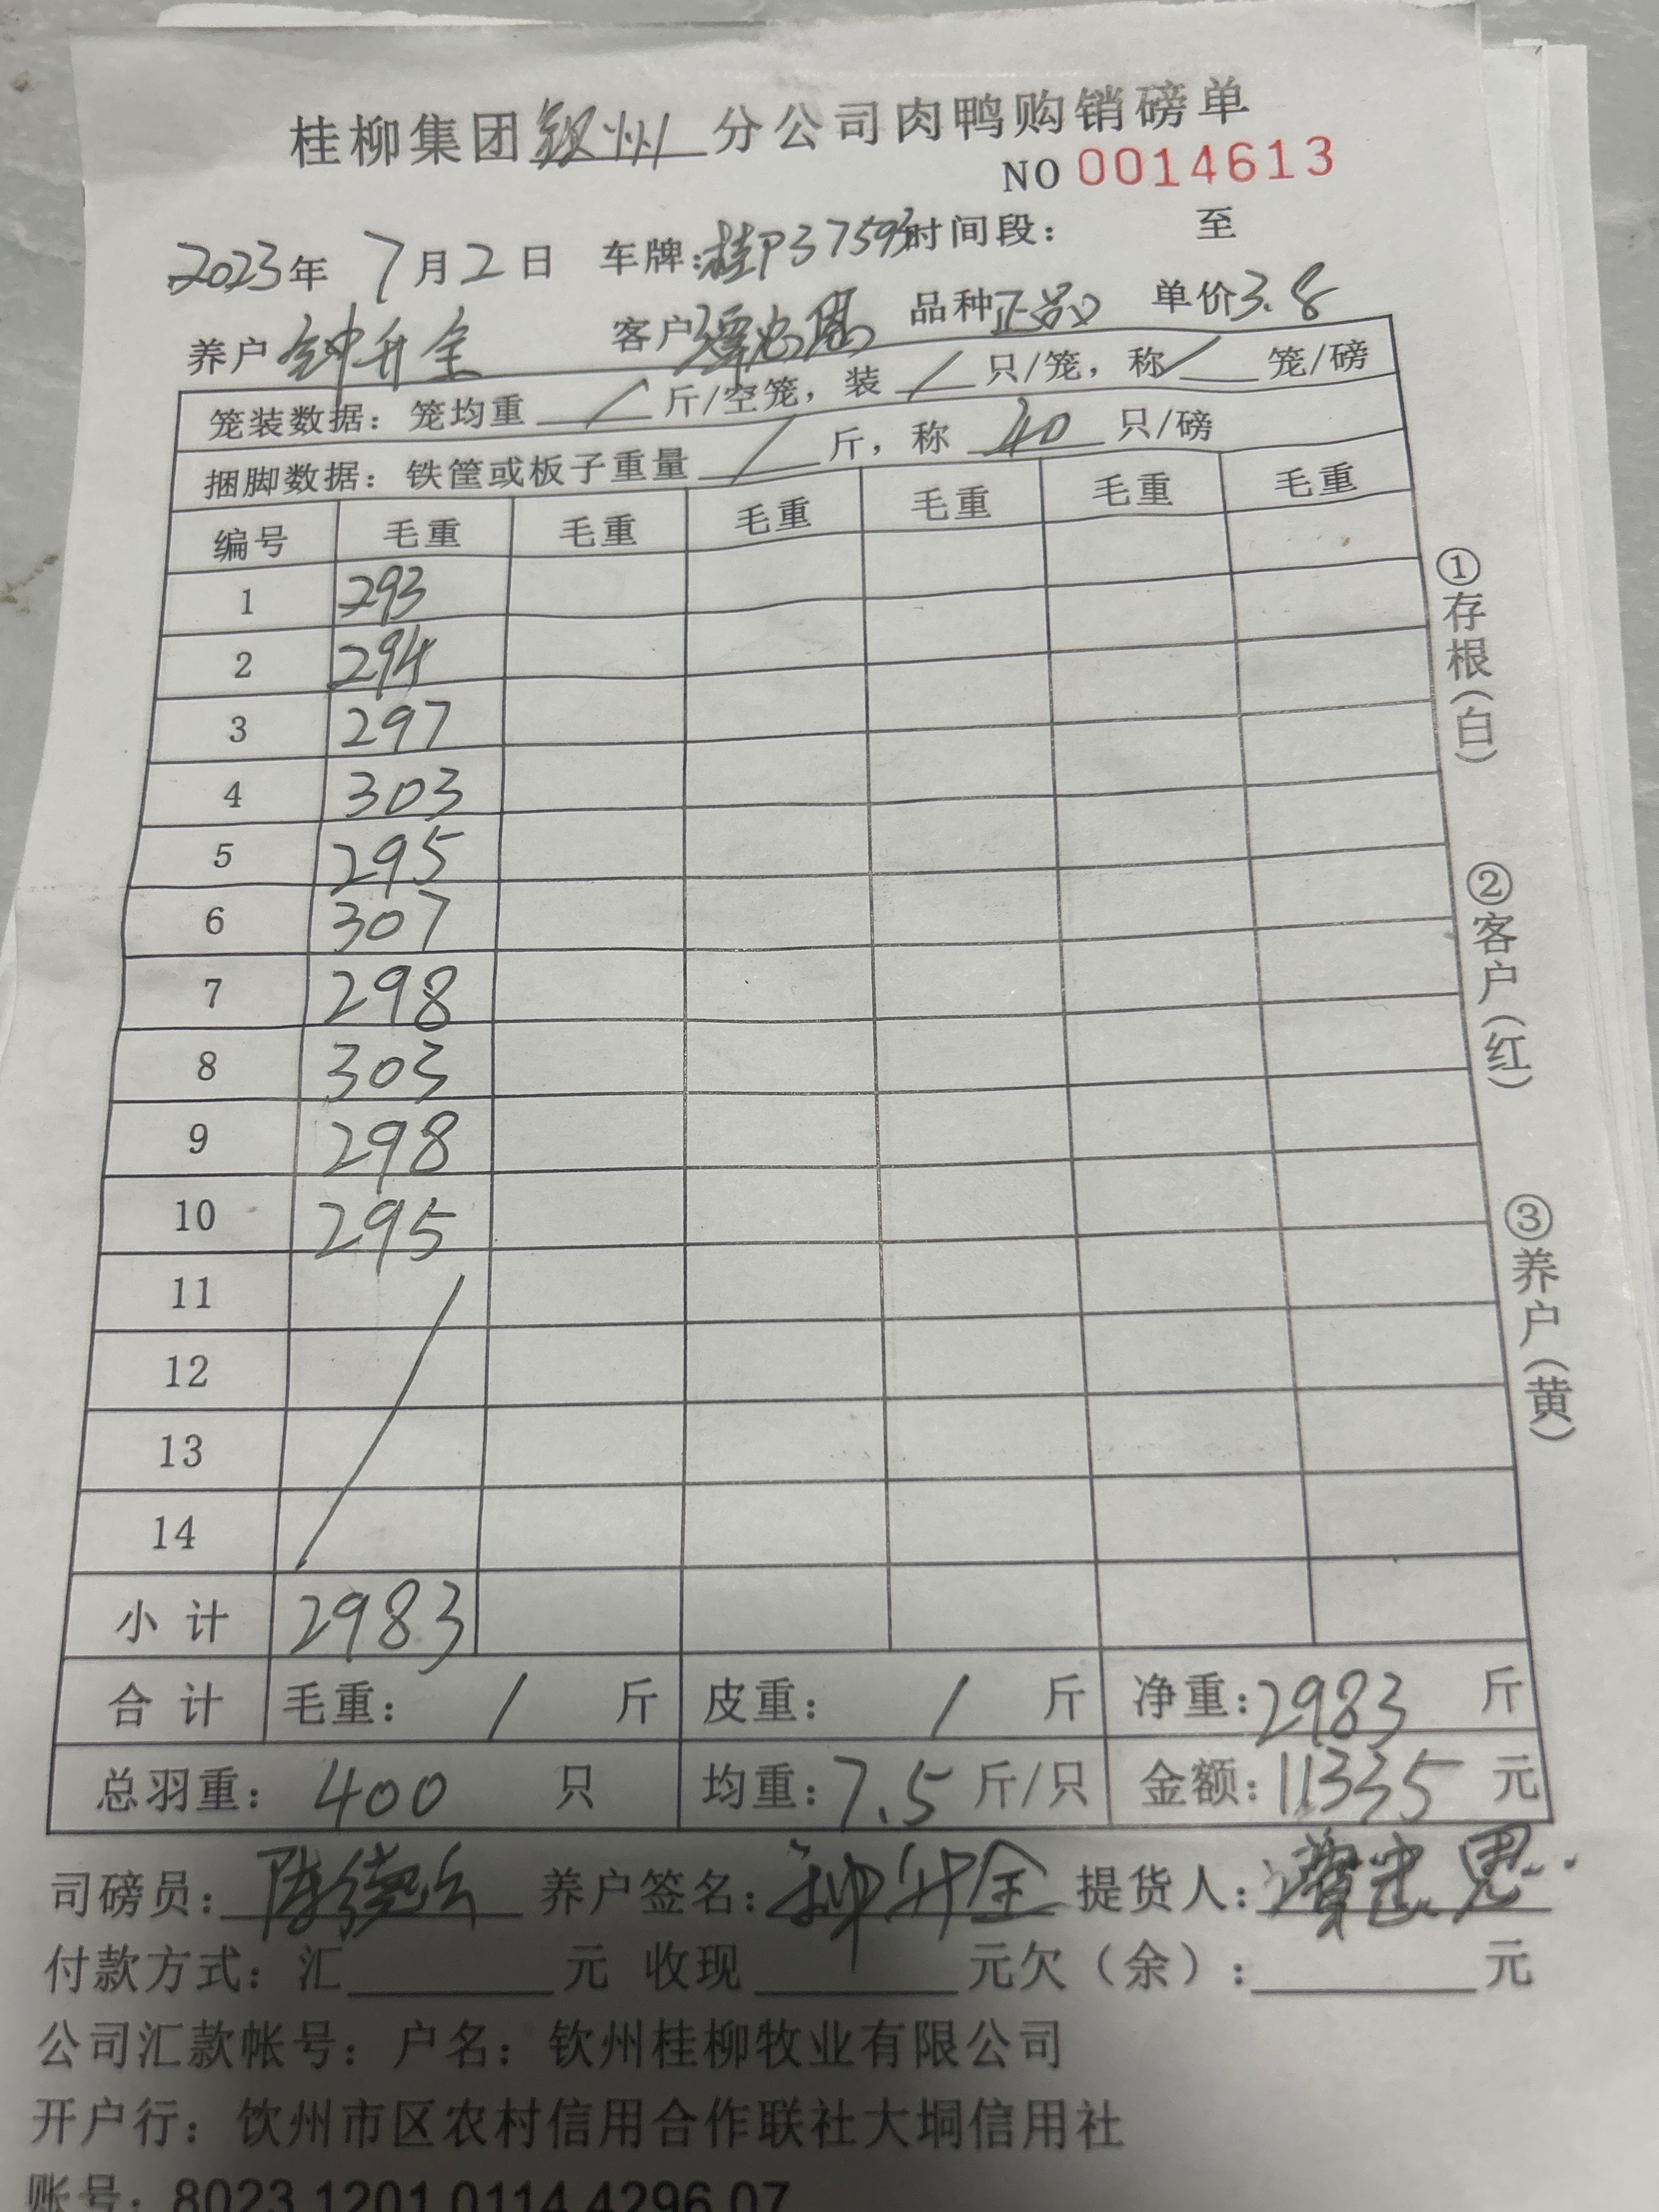 桂柳集团钦州分公司肉鸭购销磅单
NO 0014613
2023年 7月2日 车牌:桂P37593 时间段: 至
养户 钟升金 客户 谭忠恩 品种正品 单价3.8
笼装数据: 笼均重 / 斤/空笼, 装 / 只/笼, 称 / 笼/磅
捆脚数据: 铁筐或板子重量 / 斤, 称 40 只/磅
编号 毛重 毛重 毛重 毛重 毛重 毛重
1 293
2 294
3 297
4 303
5 295
6 307
7 298
8 303
9 298
10 295
11
12
13
14
小计 2983
合计 毛重: / 斤 皮重: / 斤 净重:2983 斤
总羽重: 400 只 均重:7.5 斤/只 金额:11335 元
司磅员: 养户签名:钟升金 提货人:
付款方式: 汇 元 收现 元欠(余): 元
公司汇款帐号: 户名: 钦州桂柳牧业有限公司
开户行: 钦州市区农村信用合作联社大垌信用社
账号: 8023 1201 0114 4296 07
①存根(白)
②客户(红)
③养户(黄)